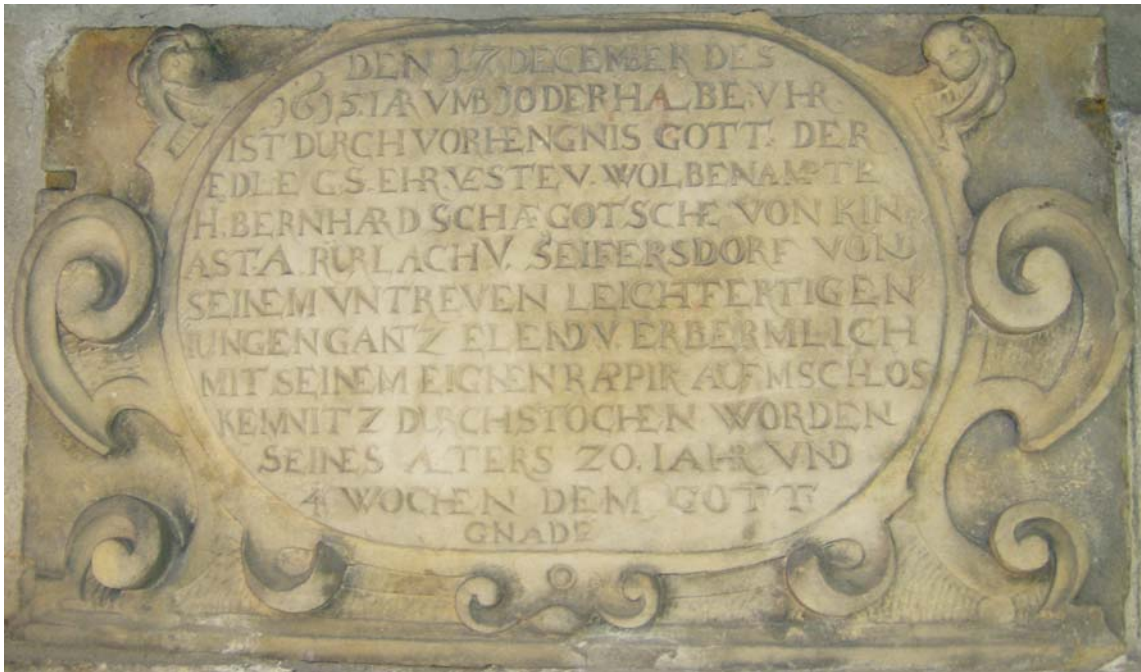 DEN 17. DECEMBER DES
1615. IAR VMB 10 DER HALBE: VHR.
IST DURCH VORHENGNIS GOTT. DER
EDLE G. S. EHRVESTE V. WOLBENAMPTE
H. BERNHARD SCHAFGOTSCHE VON KIN=
AST. A. RURLACH V. SEIFERSDORF VON
SEINEM VNTREVEN LEICHFERTIGEN
IUNGEN GANTZ ELEND V. ERBERMLICH
MIT SEINEM EIGNEN RAPPIR AUFM SCHLOS
KEMNITZ DURCHSTOCHEN WORDEN
SEINES ALTERS 20. IAHR VND
4 WOCHEN DEM GOTT
GNADE